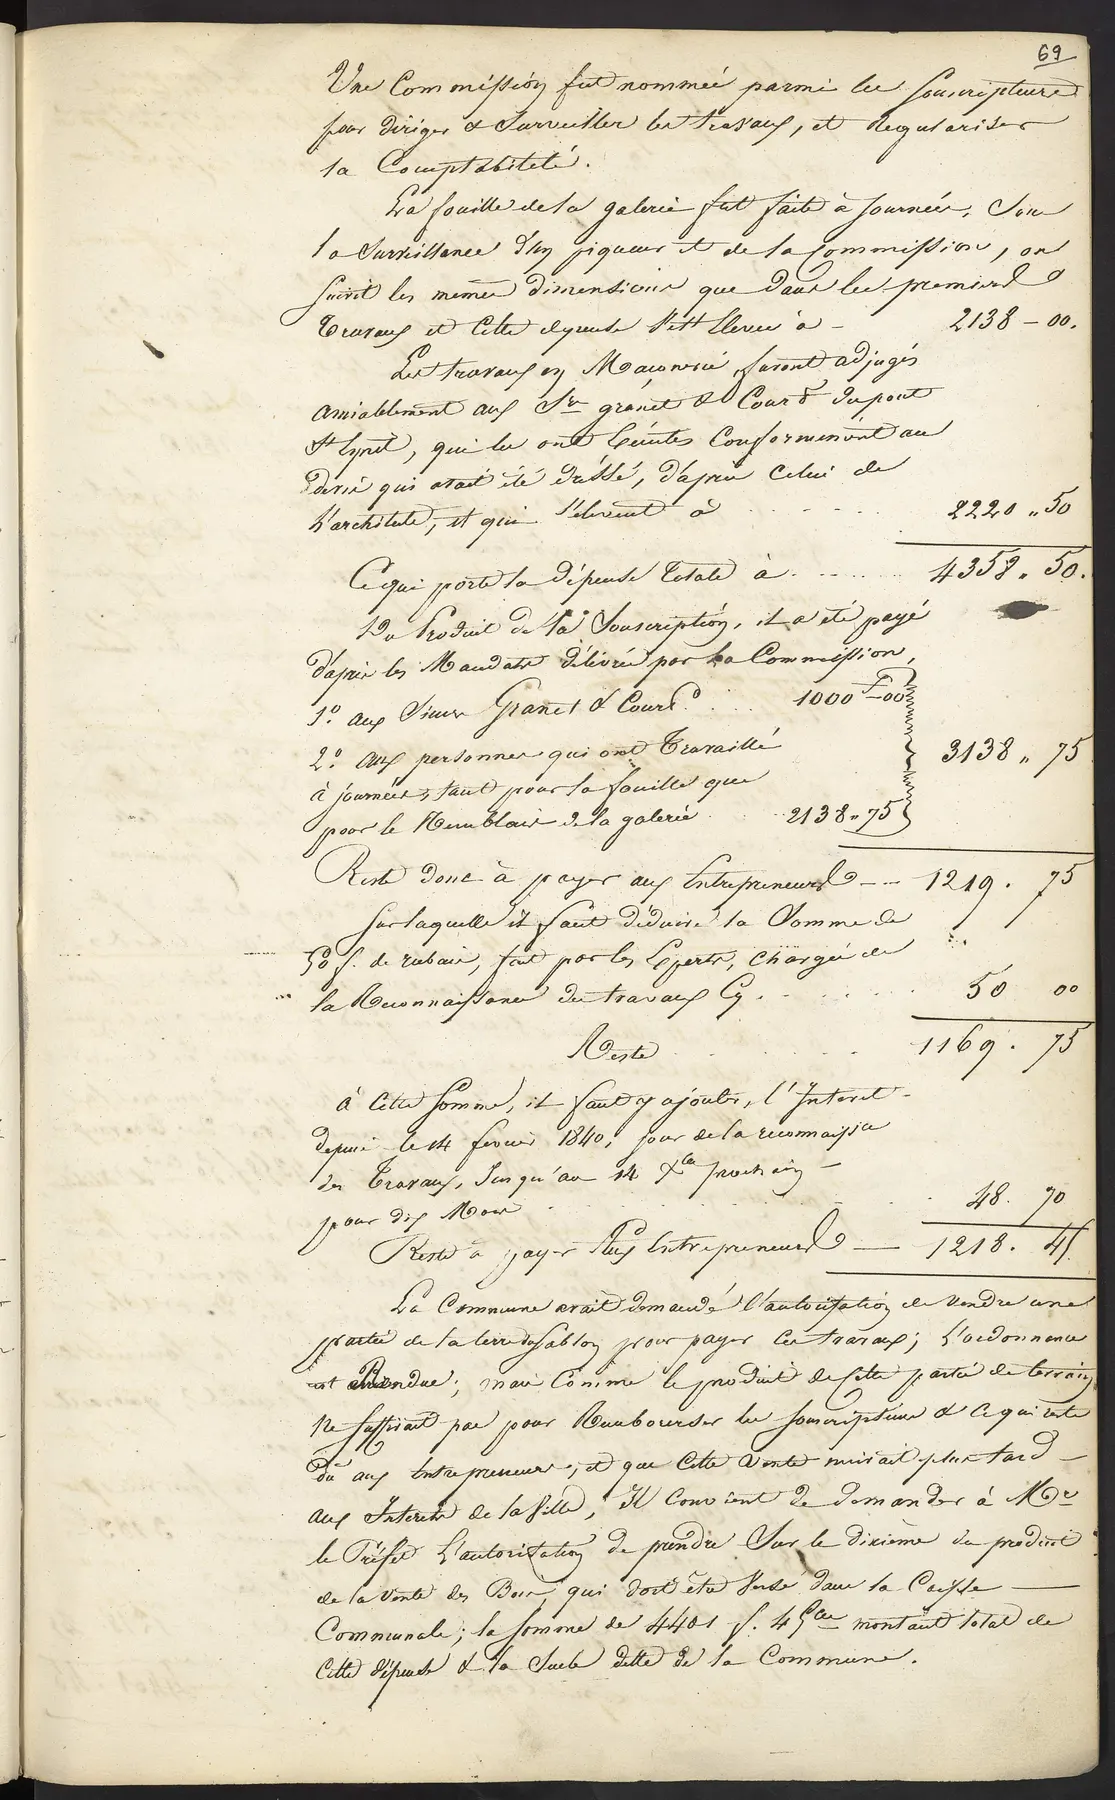 69
Une Commission fut nommée parmi les Souscripteurs
pour diriger & Surveiller les travaux, et Regulariser
la Comptabilité.
La fouille de la galerie fut faite à journées, Sous
la Surveillance d'un piqueur et de la Commission, on
Suivit les memes dimensions que dans les premiers
Travaux et Cette depense s'est Elevée à - 2138 - 00.
Les travaux en Maçonerie, furent adjugés
amiablement aux Srs granet & Cour du pont
St Esprit, qui les ont Conformement au
devis qui avait été dréssé, d'après Celui de
l'architecte, et qui s'élevent à 2220 " 50
Ce qui porte la dépense Totale à 4358 " 50.
Du Produit de la Souscription, il a été payé
d'après les Mandats délivrés par la Commission,
1º. aux Sieurs Granet & Cour 1000 F - 00
2º. aux personnes qui ont Travaillé 3138 " 75
à journées, tant pour la fouille que
pour le Remblais de la galerie 2138 " 75
Reste donc à payer aux Entrepreneurs -- 1219. 75
Sur laquelle il faut déduire la Somme de
50 f. de rabais, fait par les Experts, chargés de
la Reconnaissance des travaux Cy. 50 00
Reste 1169. 75
à Cette Somme, il faut y ajouter, l'Interet -
depuis le 14 fevrier 1840, jour de la reconnaissce
des Travaux, Jusqu'au 14 Xbre prochain -
pour dix Mois 48. 70
Reste à payer Aux Entrepreneurs — 1218. 45
La Commune avait demandé l'autorisation de Vendre une
partie de la terre du Sablon pour payer ces travaux; L'ordonnance
est Rendue; mais Comme le produit de Cette partie de terrain
Ne Suffirait pas pour Rembourser les Souscripteurs & Ce qui reste
Dû aux Entrepreneurs, et que Cette Vente nuirait plus tard -
aux Interets de la Ville, Il Convient de demander à Mr
le Préfet L'autorisation de prendre Sur le dixième du produit
de la Vente des Bois, qui doit être Versé dans la Caisse —
Communale; la Somme de 4401 f. 45ces montant total de
Cette dépense & la Seule dette de la Commune.